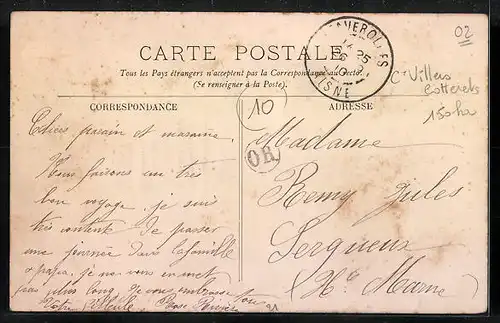 CARTE POSTALE
Tous les Pays étrangers n'acceptent pas la Correspondance au recto.
(Se renseigner à la Poste).
CORRESPONDANCE
ADRESSE
Chers parain et maraine
Nous faisons un très
bon voyage, je suis
très contente de passer
une journée dans la famille
papa, je ne vous en met
pas plus long, je vous embrasse tous
Votre
Madame
Remy Jules
Serqueux
Hte Marne
OR
10
AISNE
02
Cn Villers
Cotterets
150 ha